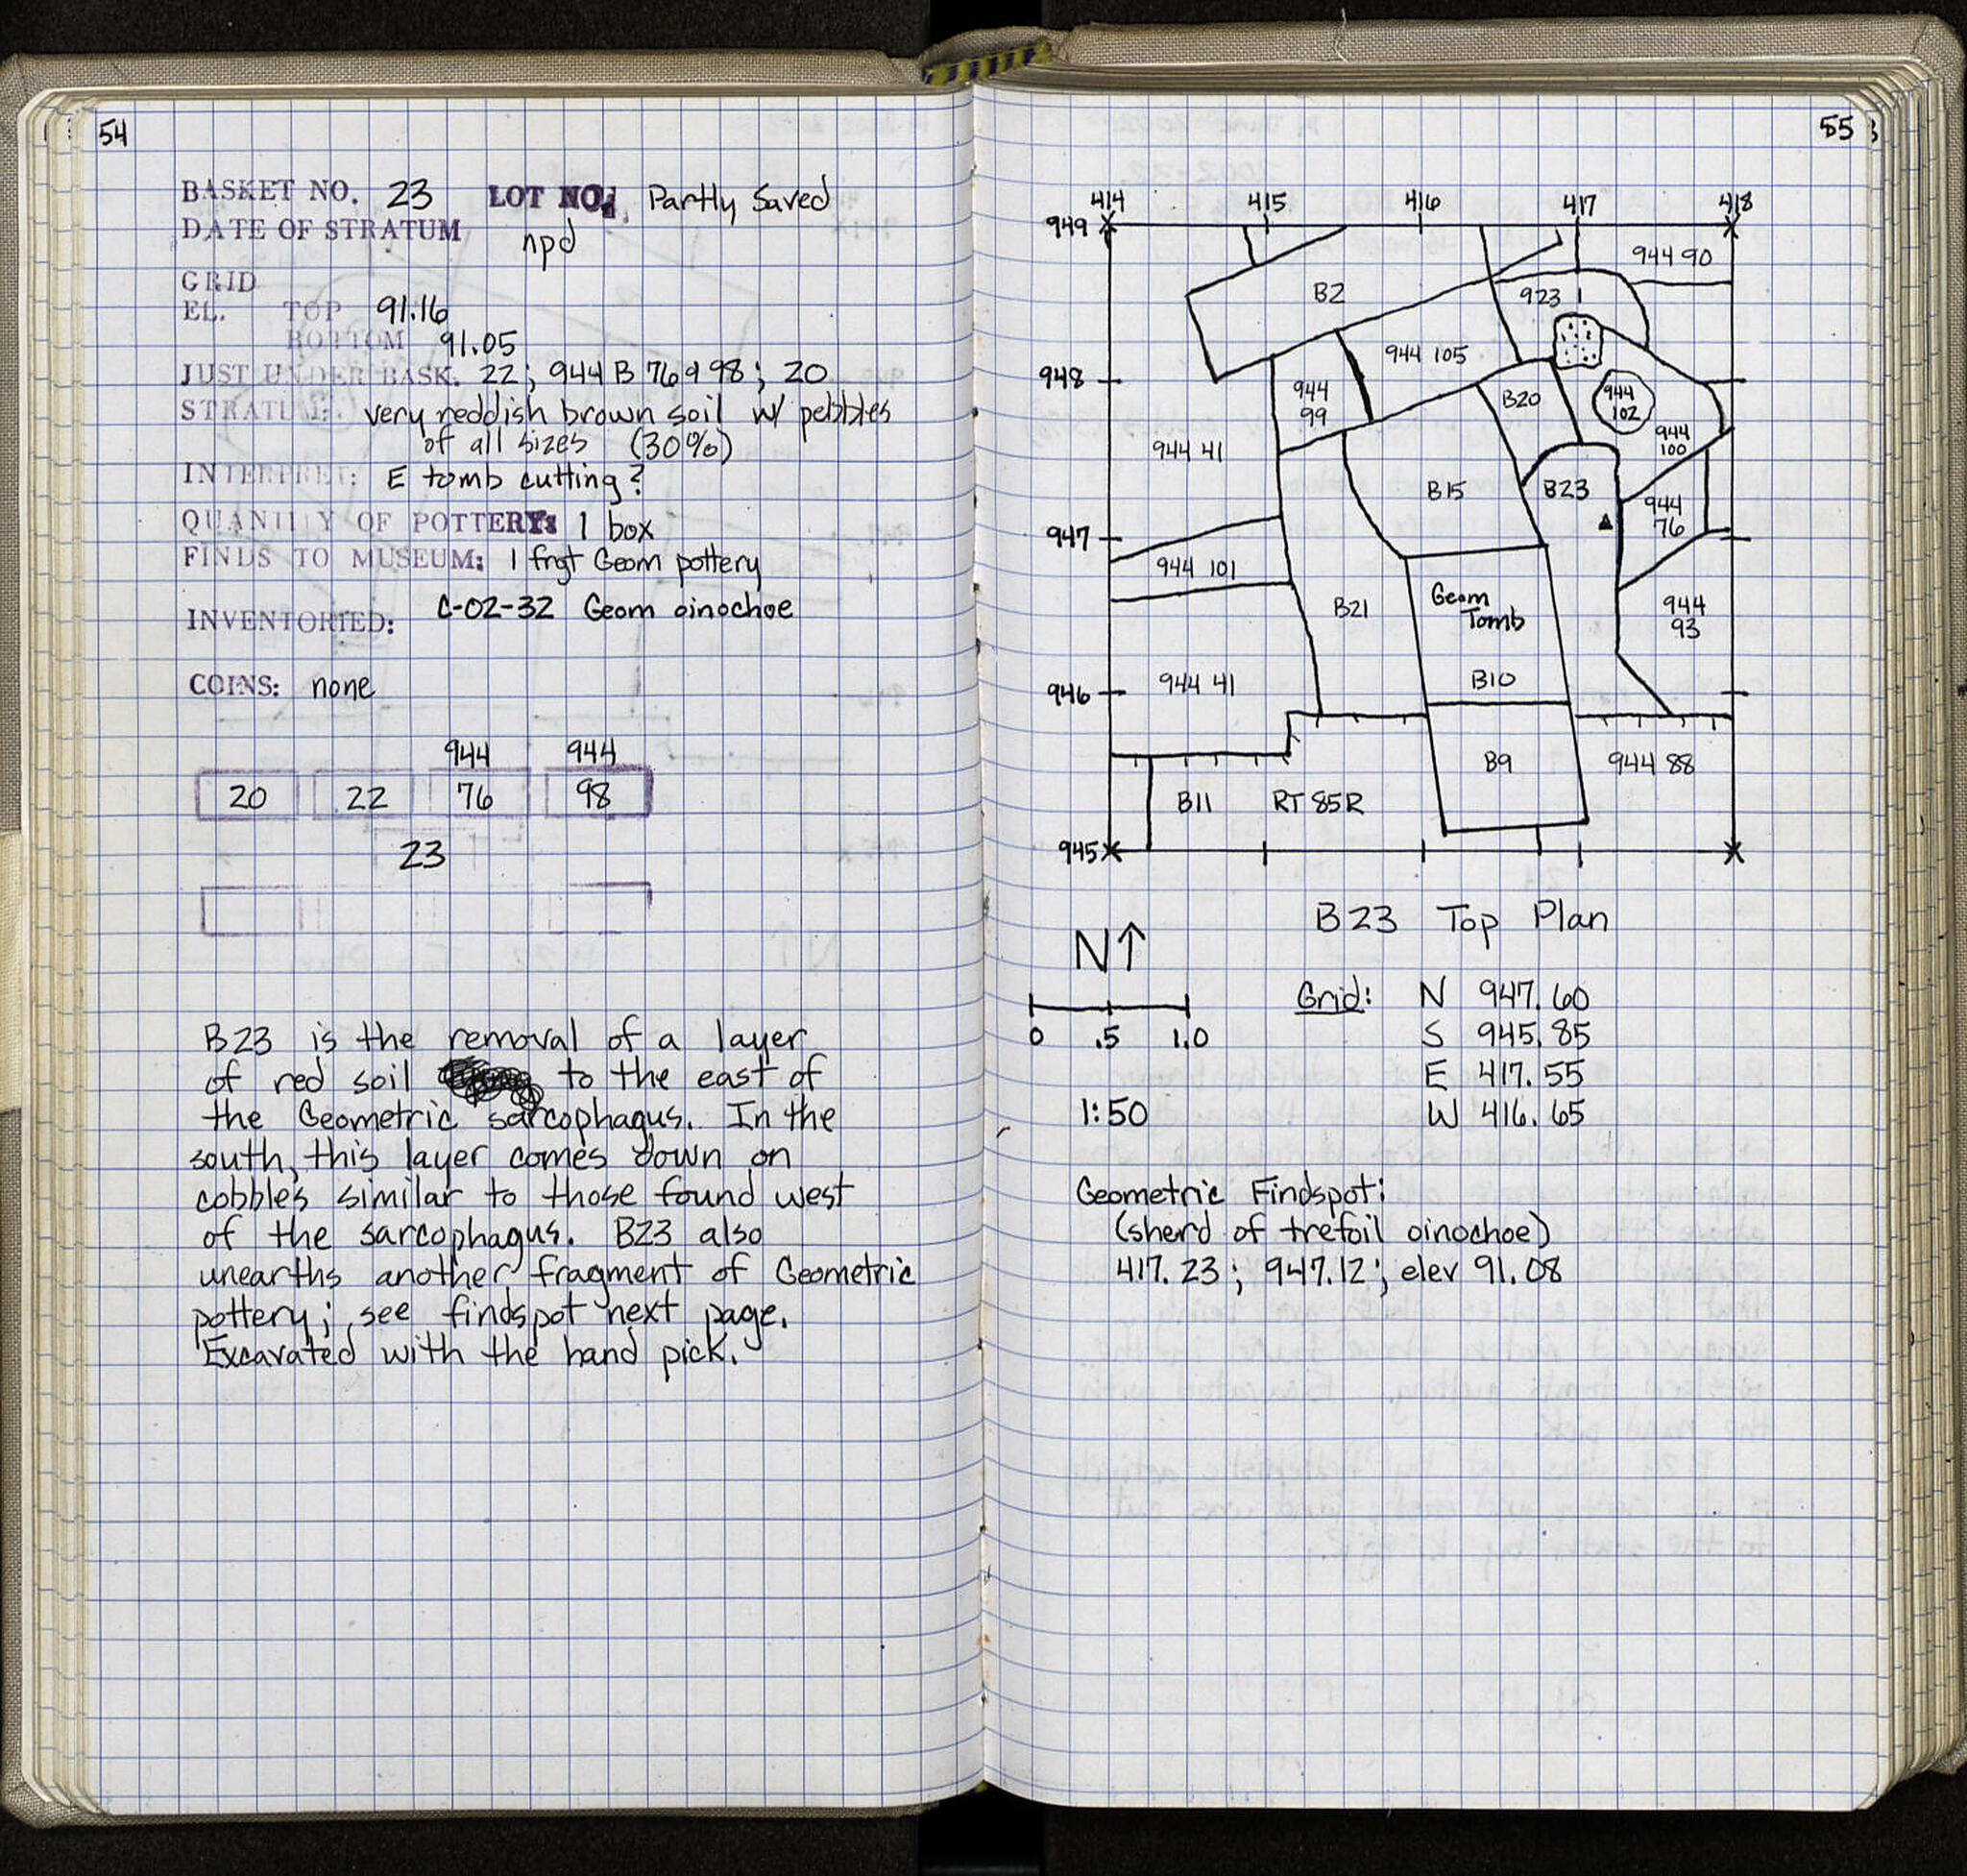 54
BASKET NO. 23 LOT NO. Partly Saved
DATE OF STRATUM npd
GRID
EL. TOP 91.16
BOTTOM 91.05
JUST UNDER BASK. 22; 944 B 76 9 98; 20
STRATUM: very reddish brown soil w/ pebbles
of all sizes (30%)
INTERPRET: E tomb cutting?
QUANTITY OF POTTERY: 1 box
FINDS TO MUSEUM: 1 frgt Geom pottery
INVENTORIED: C-02-32 Geom oinochoe
COINS: none
944 944
20 22 76 98
23
B23 is the removal of a layer
of red soil to the east of
the Geometric sarcophagus. In the
south, this layer comes down on
cobbles similar to those found west
of the sarcophagus. B23 also
unearths another fragment of Geometric
pottery; see findspot next page.
Excavated with the hand pick.
55
414 415 416 417 418
949
944 90
B2
923
944 105
948
944
99
B20
944
102
944 41
944
100
B15
B23
944
76
947
944 101
B21
Geom
Tomb
944
93
946
944 41
B10
B9
944 88
B11
RT 85R
945
B23 Top Plan
N↑
0 .5 1.0
1:50
Grid: N 947.60
S 945.85
E 417.55
W 416.65
Geometric Findspot:
(sherd of trefoil oinochoe)
417.23; 947.12; elev 91.08